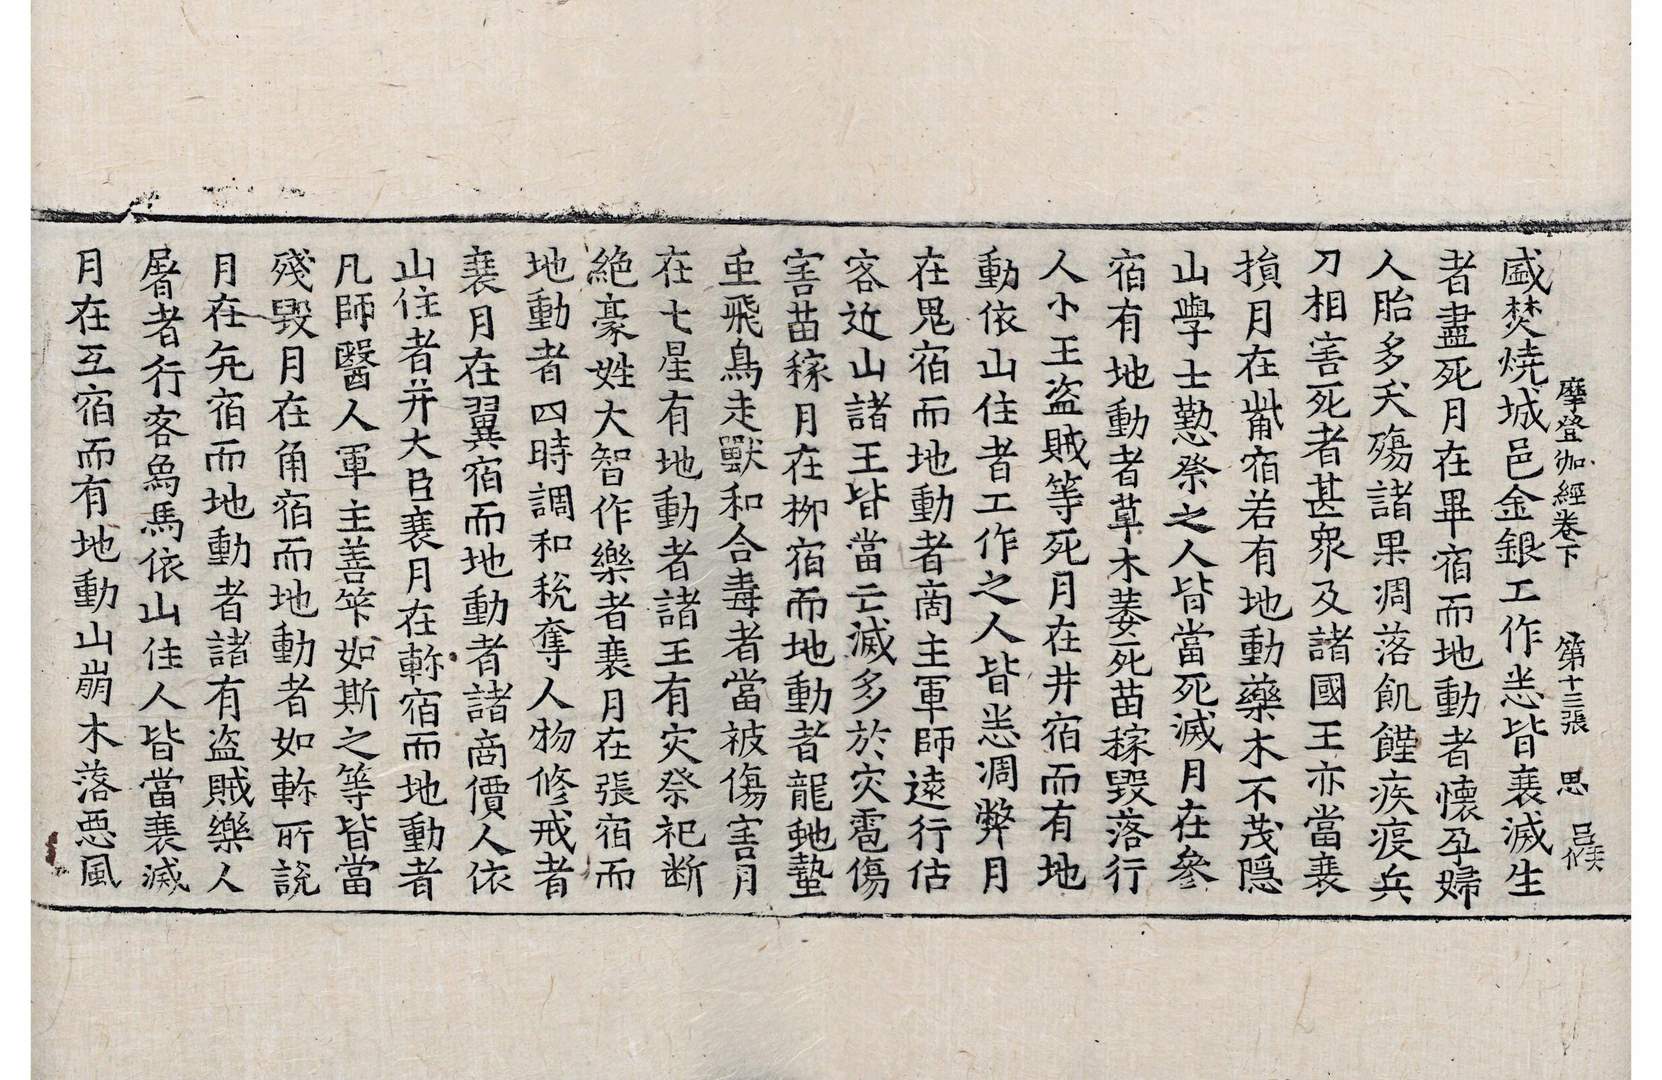 摩登伽經卷下　第十三張　思
盛焚燒城邑金銀工作恙皆衰滅生
者盡死月在畢宿而地動者懷孕婦
人胎多夭殤諸果凋落飢饉疾疫兵
刀相害死者甚衆及諸國王亦當衰
損月在觜宿若有地動藥木不茂隱
山學士懃祭之人皆當死滅月在參
宿有地動者草木萎死苗稼毀落行
人小王盜賊等死月在井宿而有地
動依山住者工作之人皆恙凋弊月
在鬼宿而地動者商主軍師遠行估
客近山諸王皆當亡滅多於灾雹傷
害苗稼月在柳宿而地動者龍虵蟄
虫飛鳥走獸和合毒者當被傷害月
在七星有地動者諸王有灾祭祀断
絶豪姓大智作樂者衰月在張宿而
地動者四時調和稅奪人物修戒者
衰月在翼宿而地動者諸商價人依
山住者并大臣衰月在軫宿而地動者
凡師醫人軍主善筭如斯之等皆當
殘毀月在角宿而地動者如軫所說
月在亢宿而地動者諸有盜賊樂人
屠者行客象馬依山住人皆當衰滅
月在互宿而有地動山崩木落惡風